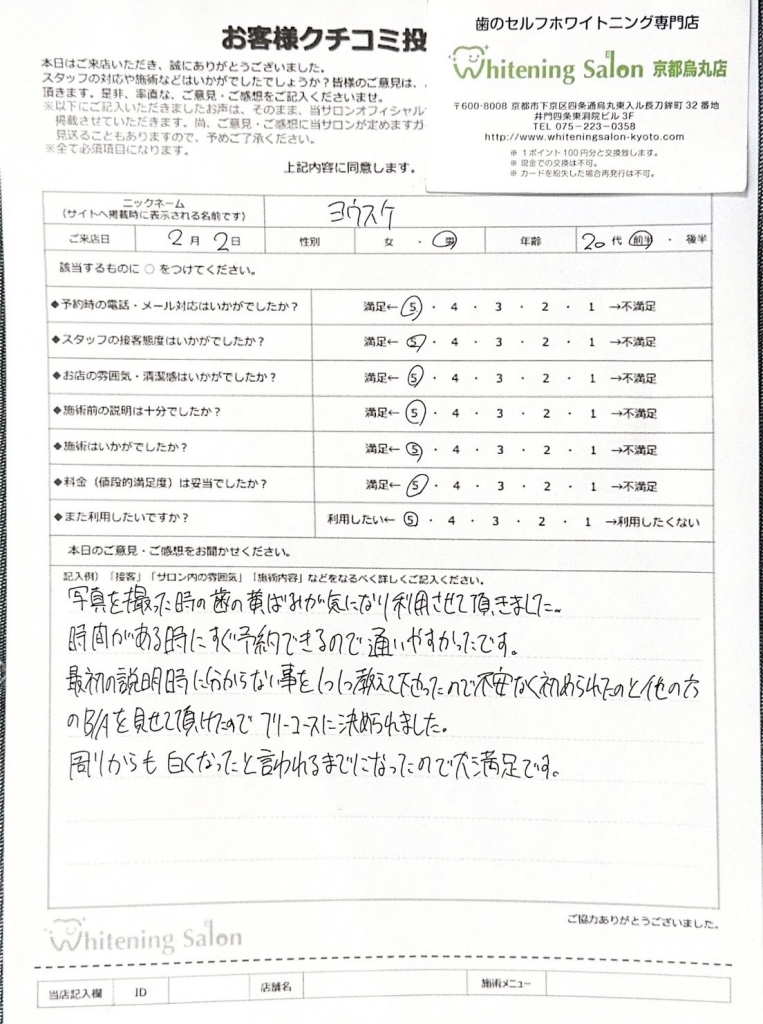 お客様クチコミ投
本日はご来店いただき、誠にありがとうございました。
スタッフの対応や施術などはいかがでしたでしょうか?皆様のご意見は、
頂きます。是非、率直な、ご意見・ご感想をご記入くださいませ。
※以下にご記入いただきましたお声は、そのまま、当サロンオフィシャル
掲載させていただきます。尚、ご意見・ご感想に当サロンが定めますガ
見送ることもありますので、予めご了承ください。
※全て必須項目になります。
上記内容に同意します。
歯のセルフホワイトニング専門店
Whitening Salon 京都烏丸店
〒600-8008 京都市下京区四条通烏丸東入ル長刀鉾町 32 番地
井門四条東洞院ビル 3F
TEL 075-223-0358
http://www.whiteningsalon-kyoto.com
※ 1ポイント100円分と交換致します。
※ 現金での交換は不可。
※ カードを紛失した場合再発行は不可。
ニックネーム
(サイトへ掲載時に表示される名前です) ヨウスケ
ご来店日 2月 2日 性別 女 ・ 男 年齢 20代 前半 ・ 後半
該当するものに ○ をつけてください。
◆予約時の電話・メール対応はいかがでしたか? 満足← 5 ・ 4 ・ 3 ・ 2 ・ 1 →不満足
◆スタッフの接客態度はいかがでしたか? 満足← 5 ・ 4 ・ 3 ・ 2 ・ 1 →不満足
◆お店の雰囲気・清潔感はいかがでしたか? 満足← 5 ・ 4 ・ 3 ・ 2 ・ 1 →不満足
◆施術前の説明は十分でしたか? 満足← 5 ・ 4 ・ 3 ・ 2 ・ 1 →不満足
◆施術はいかがでしたか? 満足← 5 ・ 4 ・ 3 ・ 2 ・ 1 →不満足
◆料金(値段的満足度)は妥当でしたか? 満足← 5 ・ 4 ・ 3 ・ 2 ・ 1 →不満足
◆また利用したいですか? 利用したい← 5 ・ 4 ・ 3 ・ 2 ・ 1 →利用したくない
本日のご意見・ご感想をお聞かせください。
記入例)「接客」「サロン内の雰囲気」「施術内容」などをなるべく詳しくご記入ください。
写真を撮った時の歯の黄ばみが気になり利用させて頂きました。
時間がある時にすぐ予約できるので通いやすかったです。
最初の説明時に分からない事を1つ1つ教えて下さったので不安なく初められたのと他の方
のB/Aを見せて頂けたのでフリーコースに決められました。
周りからも白くなったと言われるまでになったので大満足です。
ご協力ありがとうございました。
Whitening Salon
当店記入欄 ID 店舗名 施術メニュー